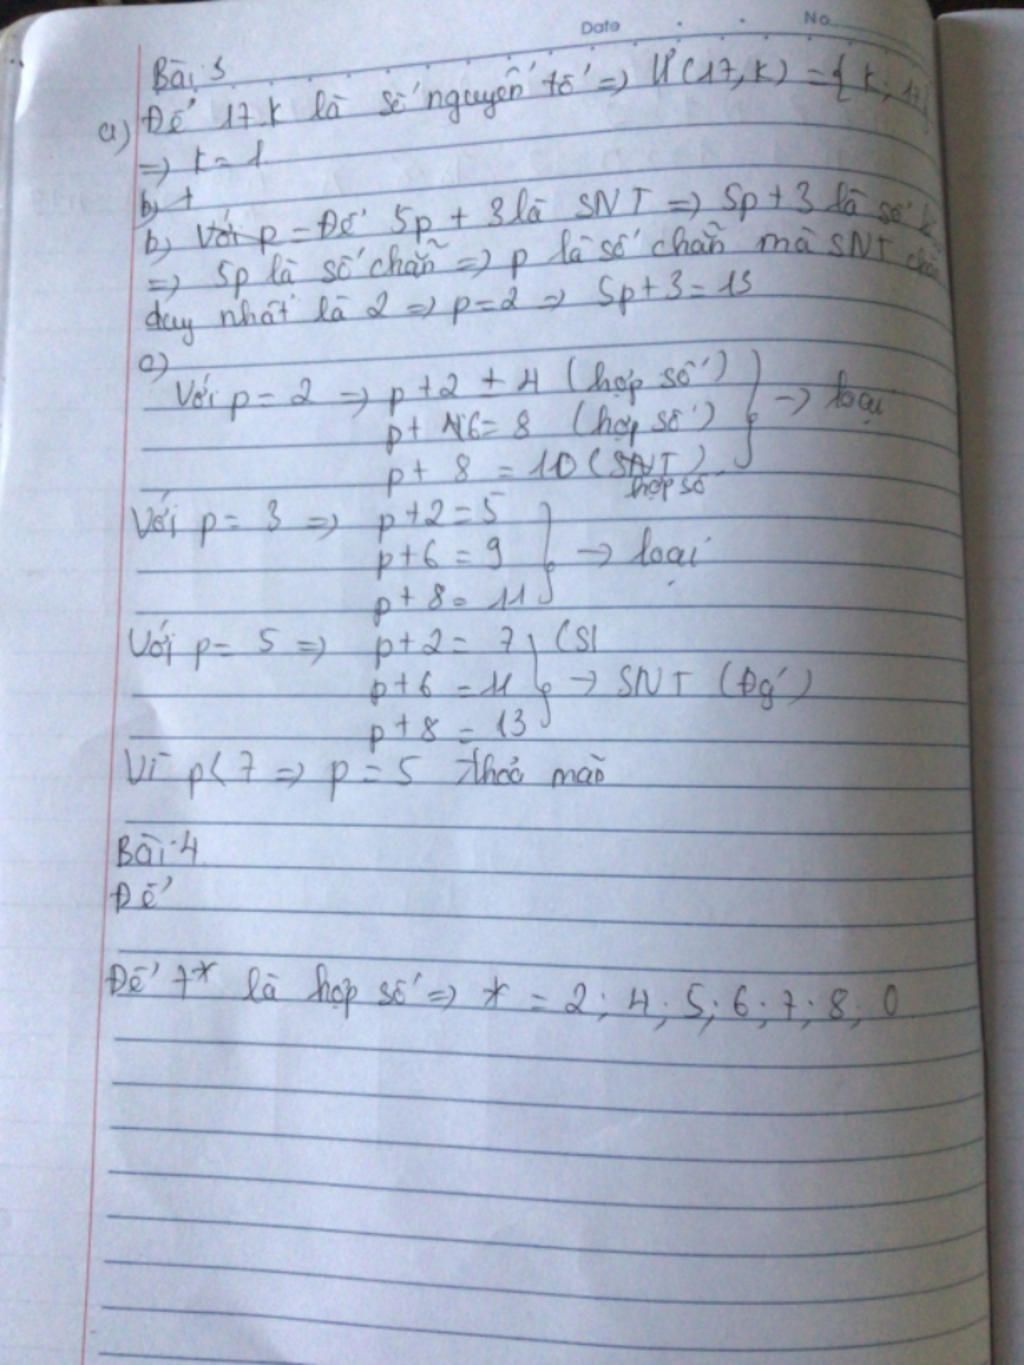 Date No
Bài 3
a) Để 17.k là số nguyên tố => Ư(17,k) = { k; 17}
=> k = 1
b, +
b, Với p = Để 5p + 3 là SNT => 5p + 3 là số
=> 5p là số chẵn => p là số chẵn mà SNT chẵn
duy nhất là 2 => p = 2 => 5p + 3 = 13
c)
Với p = 2 => p + 2 = 4 (hợp số)
p + 6 = 8 (hợp số) -> loại
p + 8 = 10 (SNT)
hợp số
Với p = 3 => p+2 = 5
p+6 = 9 -> loại
p+8 = 11
Với p = 5 => p+2 = 7 (S
p+6 = 11 -> SNT (Đg)
p+8 = 13
Vì p < 7 => p = 5 thoả mãn
Bài 4
Để
Để 7* là hợp số => * = 2; 4; 5; 6; 7; 8; 0